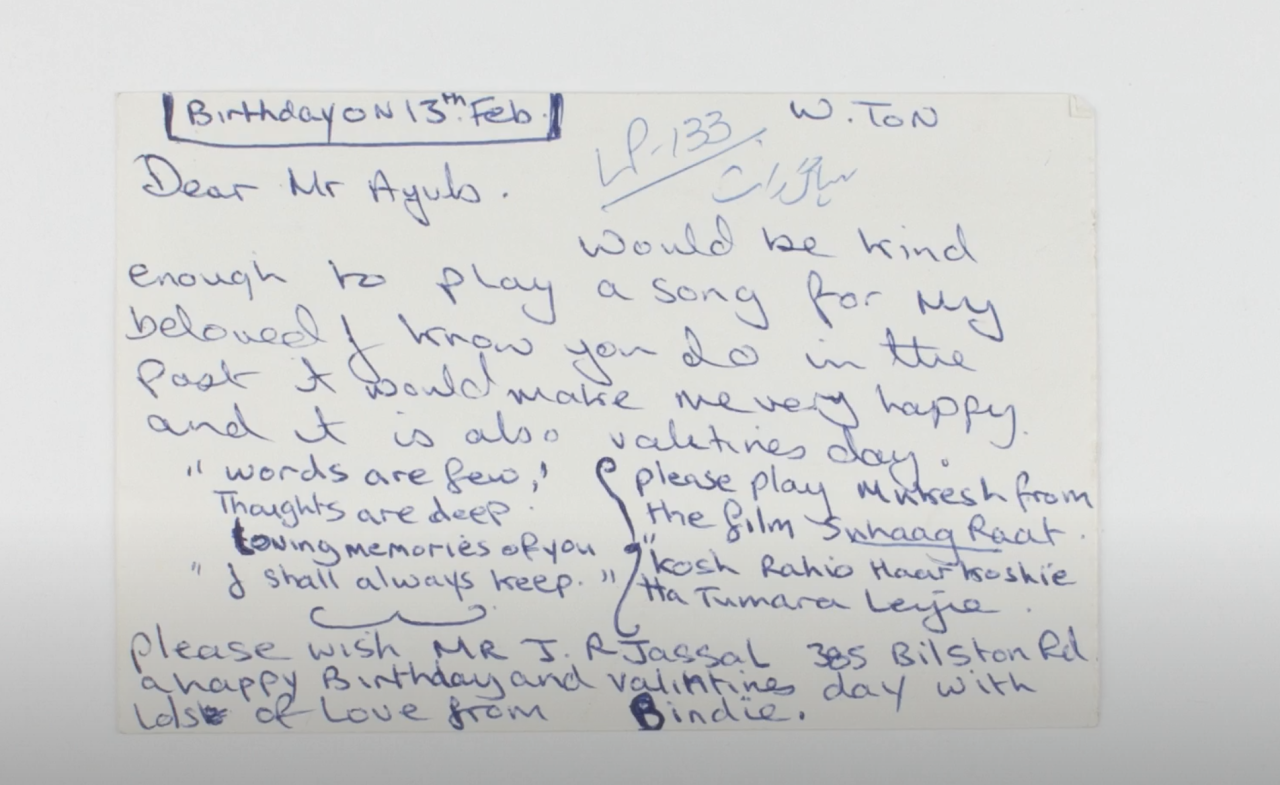 Birthday ON 13th Feb.
W. TON
LP-133
سہاگ رات
Dear Mr Ayub.
Would be kind
enough to play a song for My
beloved I know you do in the
Past it would make me very happy.
and it is also valetines day.
" words are few,'
Thoughts are deep.
Loving memories of you
" I shall always keep. "
please play Mukesh from
the film Suhaag Raat.
"kosh Rahio Haar koshie
Ha Tumara Leyie.
please wish MR J. R Jassal 385 Bilston Rd
a happy Birthday and valintines day with
Lots of Love from Bindie.